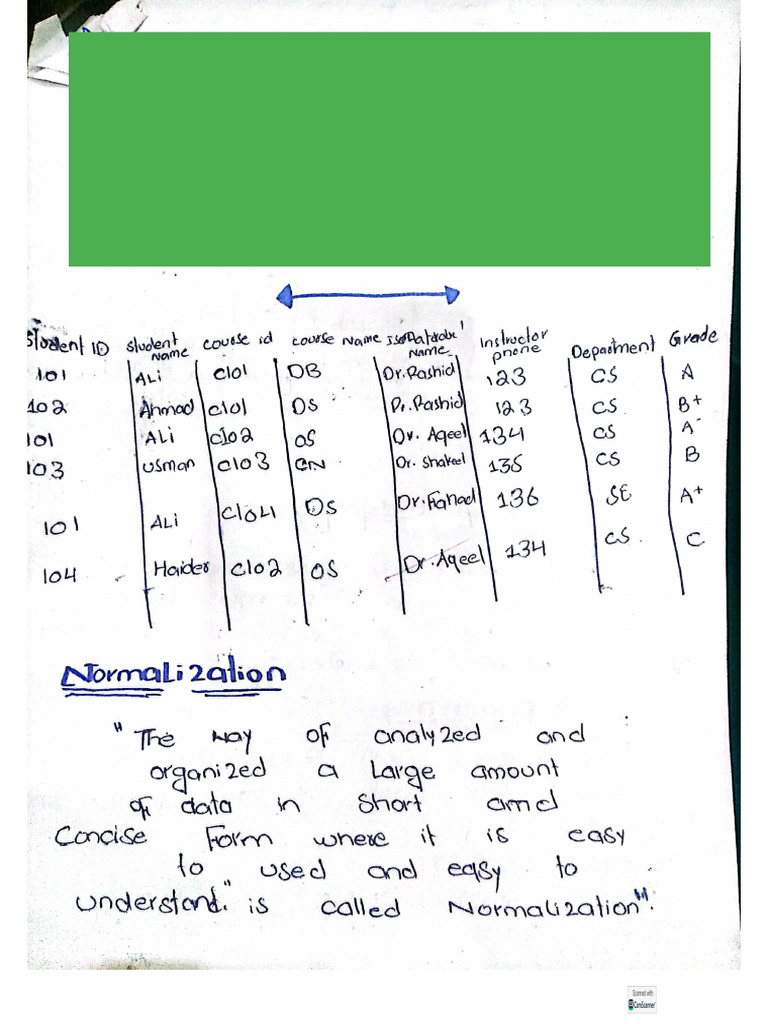 Student ID Student Name Course id Course Name Name Instructor phone Department Grade
101 ALi C101 DB Dr.Rashid 123 CS A
102 Ahmad C101 DS Dr.Rashid 123 CS B+
101 ALi C102 OS Dr. Aqeel 134 CS A-
103 Usman C103 CN Dr. Shakeel 135 CS B
101 ALi C104 DS Dr.Fahad 136 SE A+
104 Haider C102 OS Dr.Aqeel 134 CS. C
Normalization
"The way of analyzed and
organized a Large amount
of data in Short and
Concise Form where it is easy
to used and easy to
understand." is called Normalization".
Scanned with
CamScanner